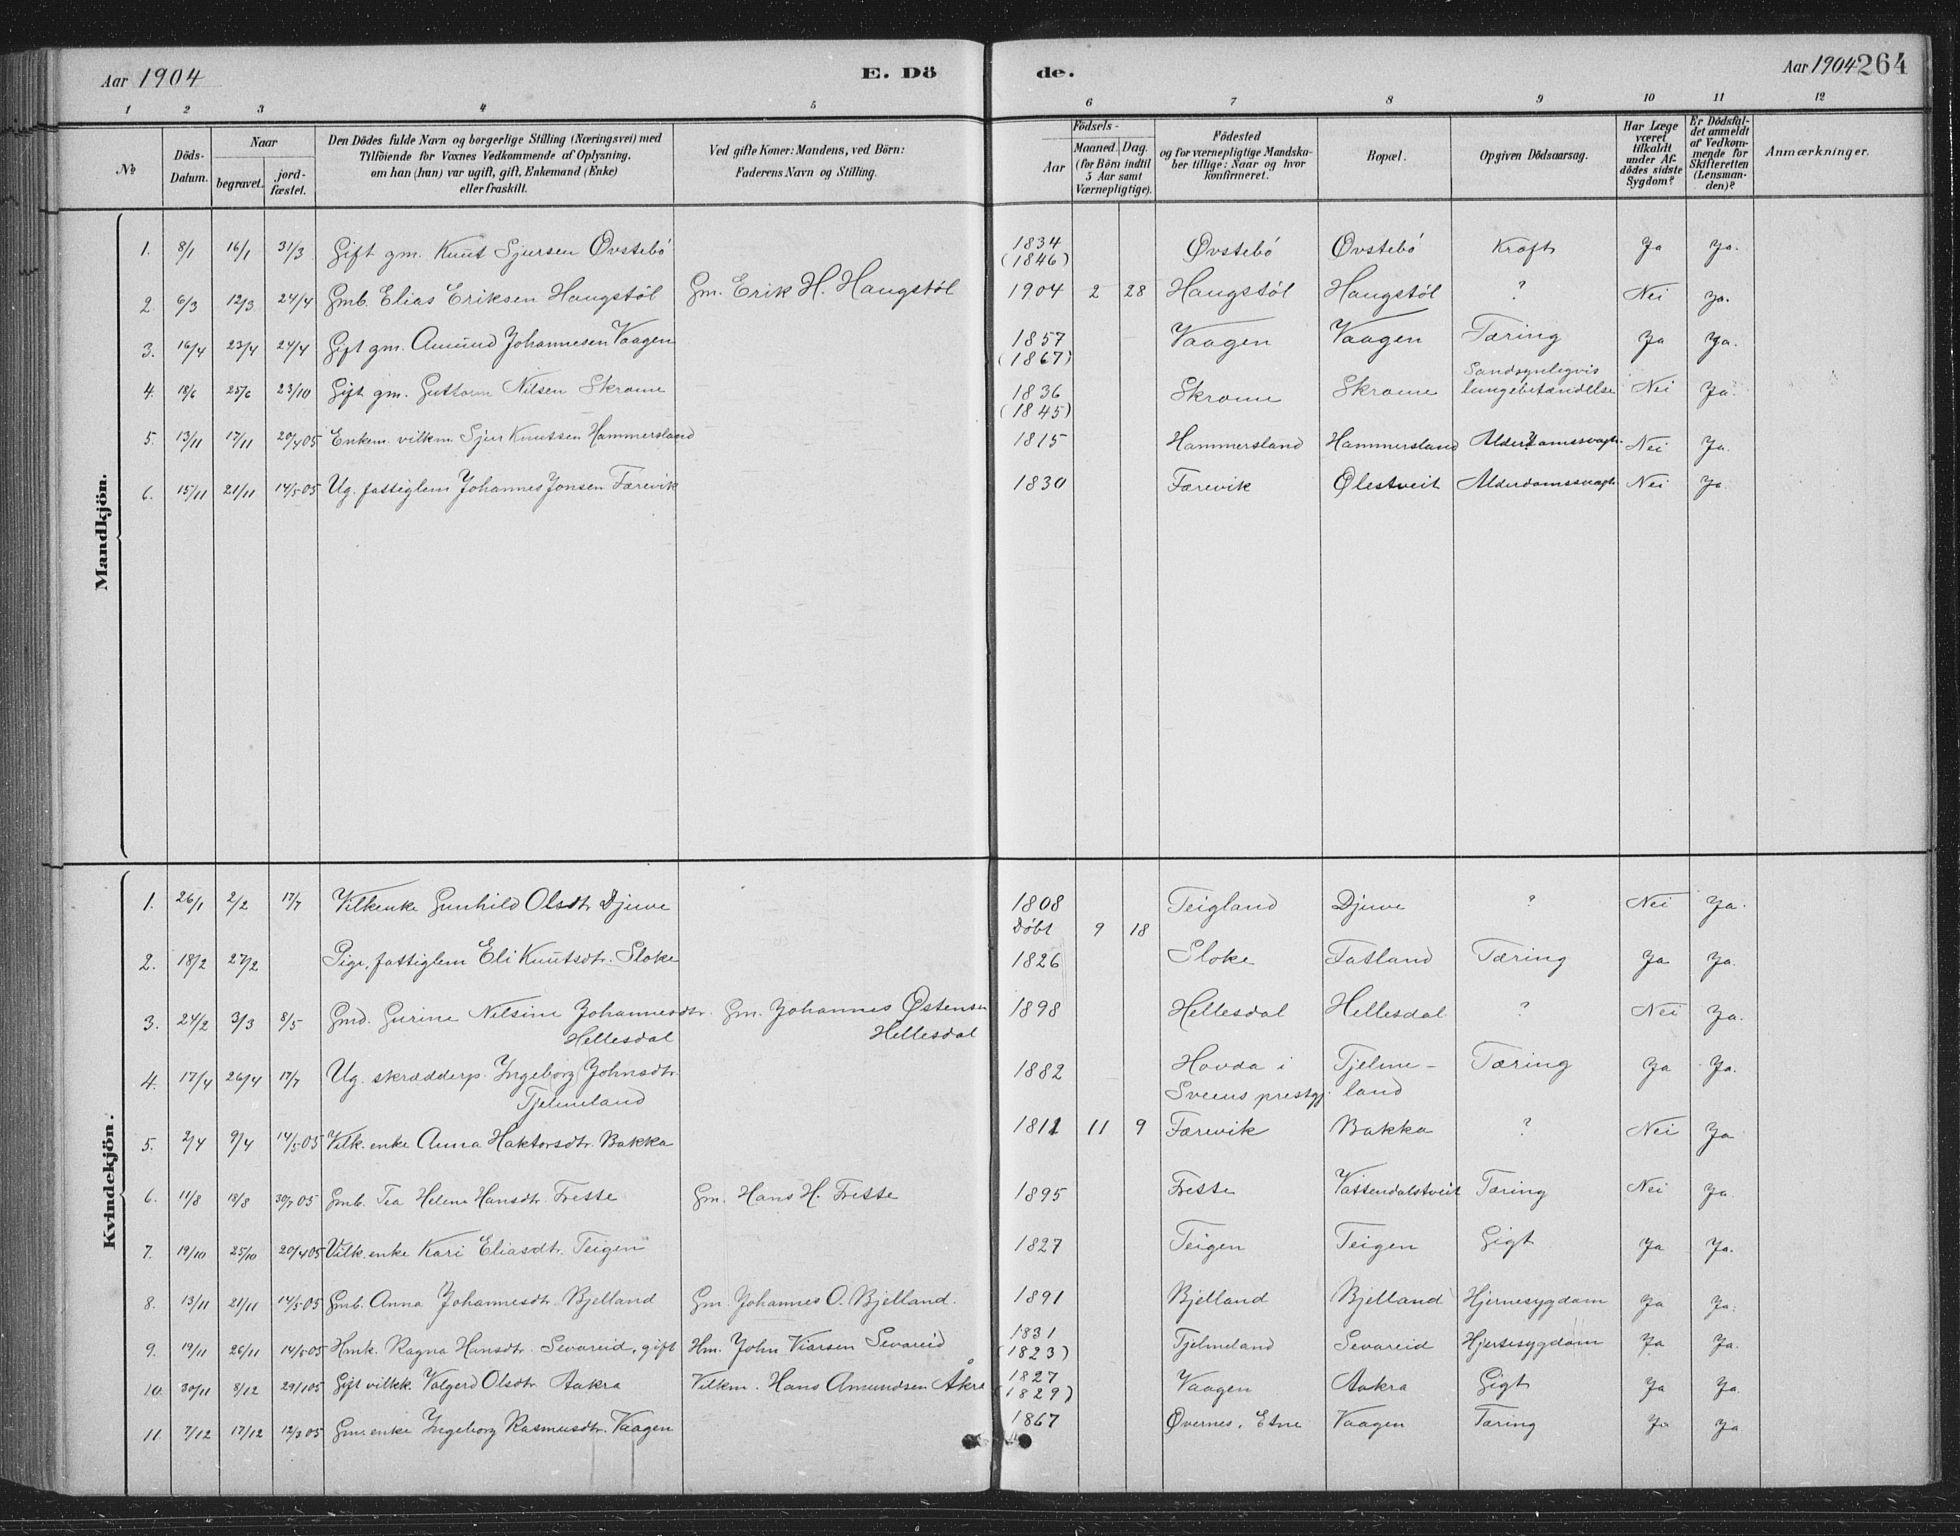 Aar 1904 E. Dö de. Aar 1904 264
1 2 3 4 5 6 7 8 9 10 11 12
№
Döds-Datum.
Naar
begravet. jord-fæstet.
Den Dödes fulde Navn og borgerlige Stilling (Næringsvei) med
Tilföiende for Voxnes Vedkommende af Oplysning,
om han (hun) var ugift, gift, Enkemand (Enke)
eller fraskilt.
Ved gifte Koner: Mandens, ved Börn:
Faderens Navn og Stilling.
Födsels-
Aar Maaned. Dag.
(for Börn indtil
5 Aar samt
Værnepligtige).
Födested
og for værnepligtige Mandska-
ber tillige: Naar og hvor
konfirmeret.
Bopæl.
Opgiven Dödsaarsag.
Har Læge
været
tilkaldt
under Af-
dödes sidste
Sygdom?
Er Dödsfal-
det anmeldt
af Vedkom-
mende for
Skifteretten
(Lensman-
den)?
Anmærkninger.
Mandkjön.
1. 8/1 16/1 31/3 Gift gm. Knut Sjursen Øvstebö 1834 (1846) Øvstebö Øvstebö Kræft Ja Ja.
2. 6/3 12/3 24/4 Gmb. Elias Eriksen Haugstöl Gm. Erik H. Haugstöl 1904 2 28 Haugstöl Haugstöl ? Nei Ja.
3. 16/4 23/4 24/4 Gift gm. Amund Johannesen Vaagen 1857 (1867) Vaagen Vaagen Tæring Ja Ja.
4. 18/6 25/6 23/10 Gift gm. Guttorm Nilsen Skrome 1836 (1845) Skrome Skrome Sandsynligvis lungebetændelse Nei Ja.
5. 13/11 17/11 20/4 05 Enkem. vilkm. Sjur Knutsen Hammersland 1815 Hammersland Hammersland Alderdomssvagh. Nei Ja.
6. 15/11 21/11 14/5 05 Ug. fattiglem Johannes Jonsen Færevik 1830 Færevik Ølestveit Alderdomssvagh Nei Ja.
Kvindekjön.
1. 26/1 2/2 17/7 Vilkenke Gunhild Olsdtr Djuve 1808 Döbt 9 18 Teigland Djuve ? Nei Ja.
2. 18/2 27/2 Pige, fattiglem Eli Knutsdtr. Sloke 1826 Sloke Fatland Tæring Ja Ja.
3. 24/2 3/3 8/5 Gmd. Gurine Nilsine Johannesdtr. Hellesdal Gm. Johannes Østensen Hellesdal 1898 Hellesdal Hellesdal ? Nei Ja.
4. 17/4 26/4 17/7 Ug. skrædderp. Ingeborg Johnsdtr. Tjelmeland 1882 Hovda i Sveens prestgj. Tjelmeland Tæring Ja Ja.
5. 2/4 9/4 14/5 05 Vilk.enke Anna Haktorsdtr. Bakka 1811 11 9 Færevik Bakka ? Nei Ja
6. 11/8 18/8 30/7 05 Gmb. Tea Helene Hansdtr. Frette Gm. Hans H. Frette 1895 Frette Vattendalstveit Tæring Nei Ja.
7. 19/10 25/10 20/4 05 Vilk.enke Kari Eliasdtr. Teigen 1827 Teigen Teigen Gigt Ja Ja.
8. 13/11 21/11 14/5 05 Gmb. Anna Johannesdtr. Bjelland Gm. Johannes O. Bjelland. 1891 Bjelland Bjelland Hjernesygdom Ja Ja.
9. 19/11 26/11 14/5 05 Hmk. Ragna Hansdtr. Sevareid, gift Hm. John Viarsen Sevareid 1831 (1823) Tjelmeland Sevareid Hjertesygdom Ja Ja.
10. 30/11 8/12 29/1 05 Gift vilkk. Valgerd Olsdtr Aakra Vilkm. Hans Amundsen Åkra 1827 (1829) Vaagen Aakra Gigt Ja Ja.
11. 7/12 17/12 12/3 05 Gm.enke Ingeborg Rasmusdtr. Vaagen 1867 Øvernes, Etne Vaagen Tæring Ja Ja